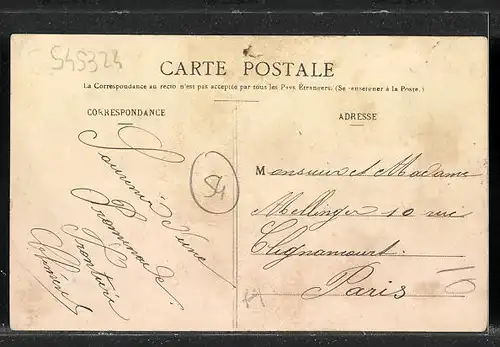 545324
CARTE POSTALE
La Correspondance au recto n'est pas acceptée par tous les Pays Étrangers. (Se renseigner à la Poste.)
CORRESPONDANCE
Souvenir d'une
Promenade
Frontière
54
ADRESSE
Monsieur et Madame
Mellinger 10 rue
Clignancourt.
Paris
10